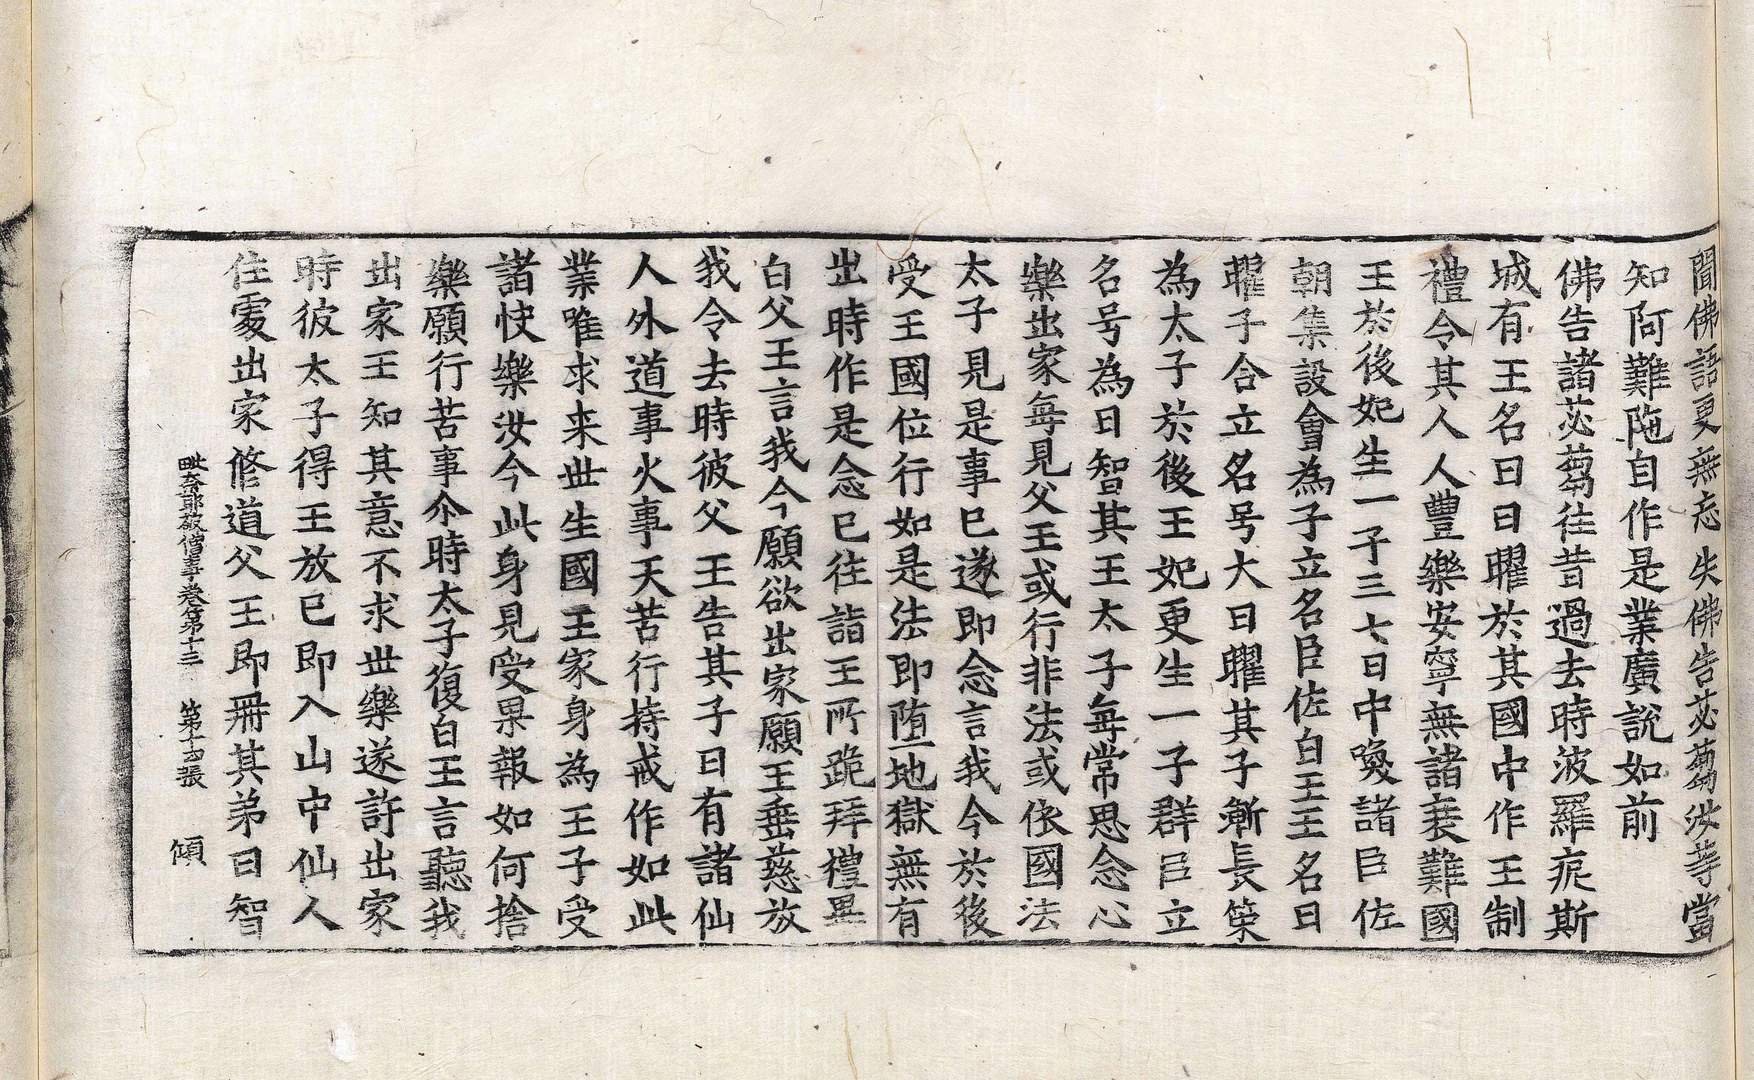 聞佛語更無忘失佛告苾蒭汝等當
知阿難陁自作是業廣說如前
佛告諸苾蒭往昔過去時波羅痆斯
城有王名曰日曜於其國中作王制
禮令其人人豐樂安寧無諸衰難國
王於後妃生一子三七日中喚諸臣佐
朝集設會為子立名臣佐白王王名日
曜子合立名号大日曜其子漸長策
為太子於後王妃更生一子群臣立
名号為日智其王太子每常思念心
樂出家每見父王或行非法或依國法
太子見是事已遂即念言我今於後
受王國位行如是法即堕地獄無有
出時作是念已往詣王所跪拜禮畢
白父王言我今願欲出家願王垂慈放
我令去時彼父王告其子曰有諸仙
人外道事火事天苦行持戒作如此
業唯求来世生國王家身為王子受
諸快樂汝今此身見受果報如何捨
樂願行苦事尒時太子復白王言聽我
出家王知其意不求世樂遂許出家
時彼太子得王放已即入山中仙人
住處出家修道父王即冊其弟日智
毗奈耶破僧事卷第十三 第十五張 傾